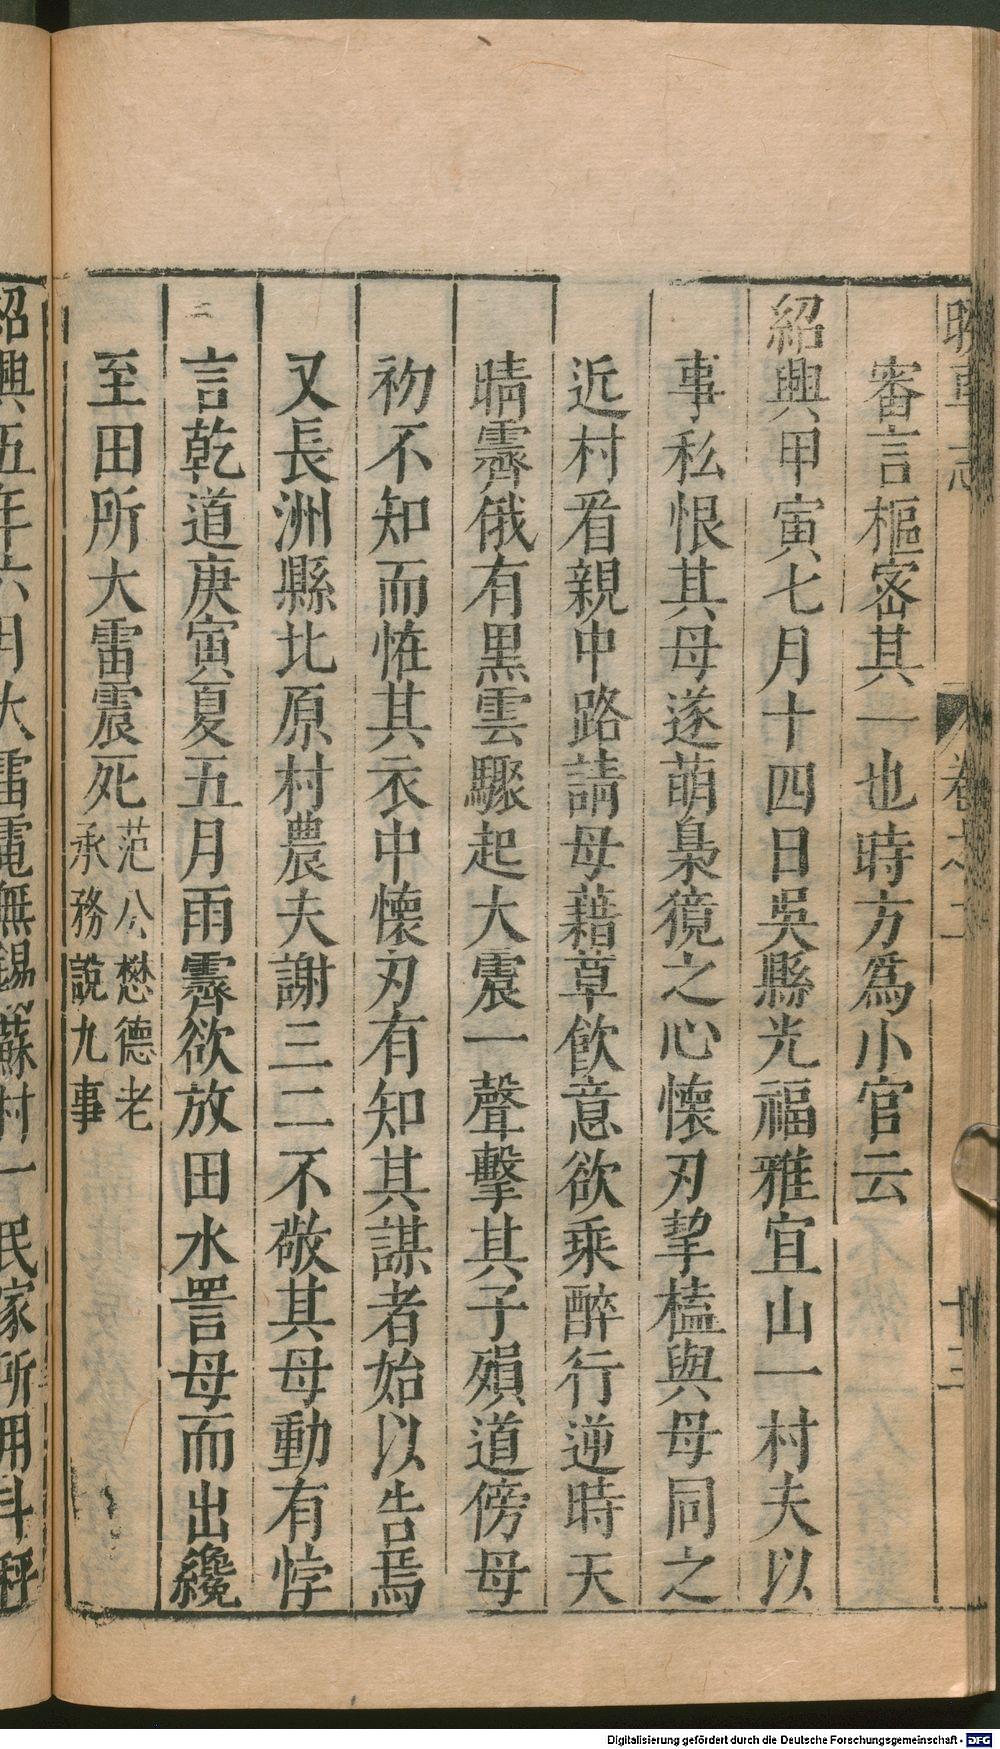 審言樞密其一也時方爲小官云
紹興甲寅七月十四日吳縣光福雅宜山一村夫以
事私恨其母遂萌梟獍之心懷刃挈榼與母同之
近村看親中路請母藉草飲意欲乘醉行逆時天
晴霽俄有黑雲驟起大震一聲擊其子殞道傍母
初不知而恠其衣中懷刃有知其謀者始以告焉
又長洲縣北原村農夫謝三二不敬其母動有悖
言乾道庚寅夏五月雨霽欲放田水詈母而出纔
至田所大雷震死范公懋德老
承務說九事
紹興五年六月大雷電無錫蘇村一民家所用斗秤
Digitalisierung gefördert durch die Deutsche Forschungsgemeinschaft - DFG